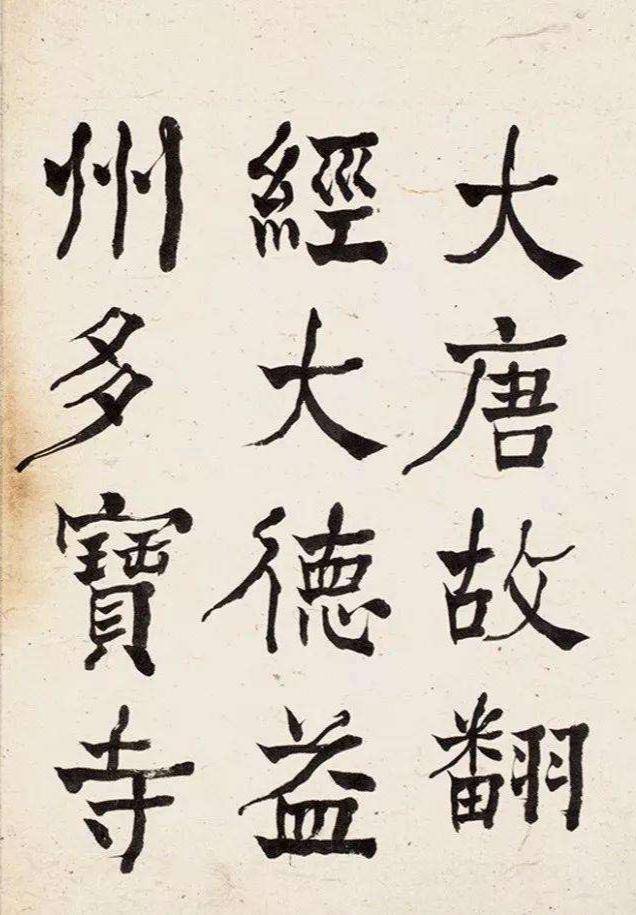 大唐故翻
經大德益
州多寶寺